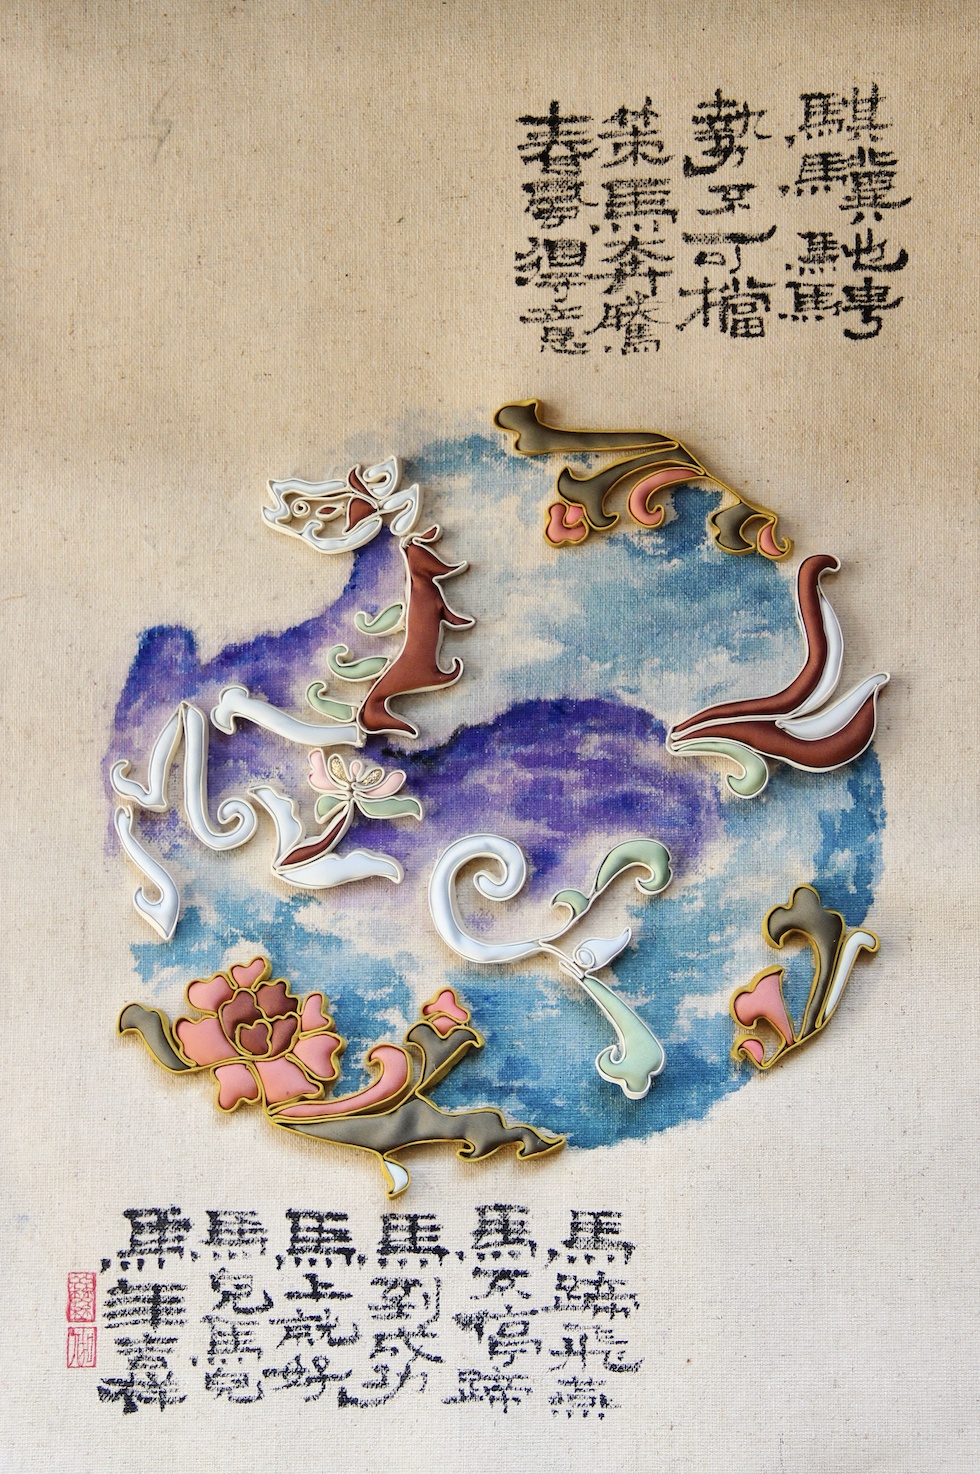 騏驥馳騁
勢不可擋
策馬奔騰
春得意
馬踏飛燕
馬不停蹄
馬到成功
馬上就好
馬兒馬兒
馬年祥